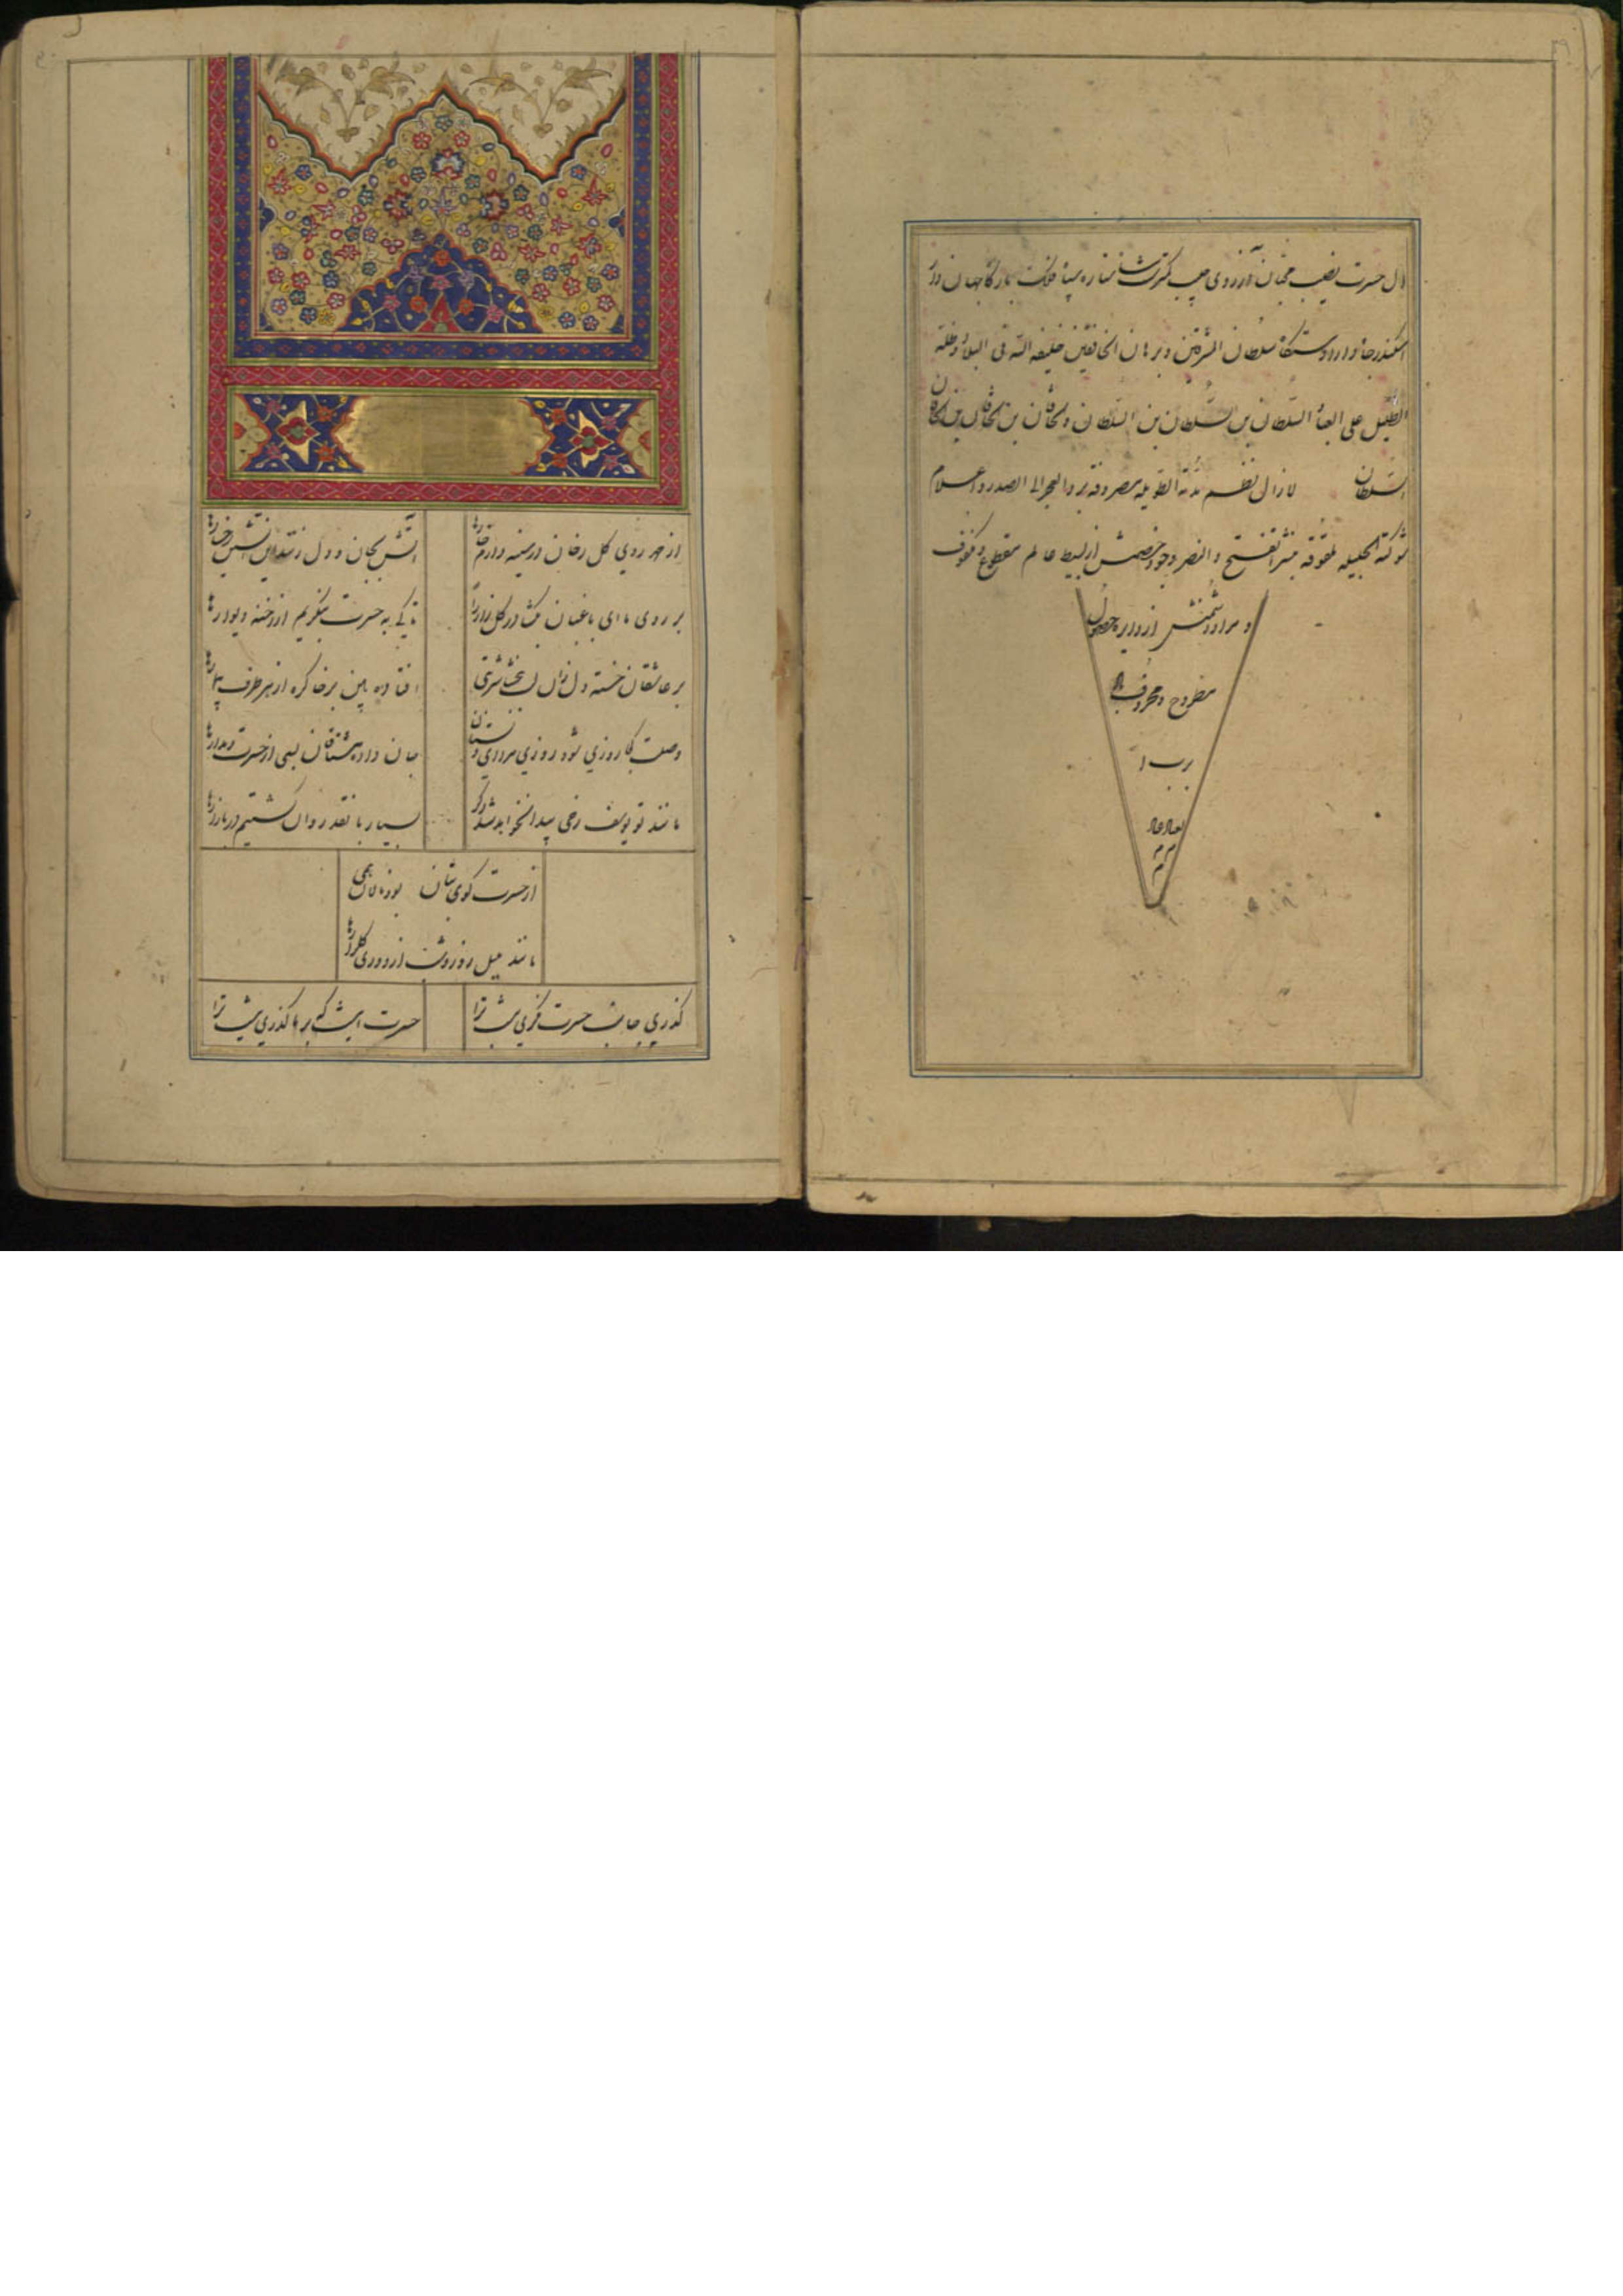 دل حسرت نصیب محبان آرزوی حبیب کثرت ستاره سپاه فلک بارگاه جهان دار
اسکندر جاه دارا دستگاه سلطان المشرقین و برهان الخافقین خلیفه الله فی البلاد و ظله
الظلیل علی العباد السلطان بن السلطان بن السلطان و الخاقان بن الخاقان بن الخاقان
السلطان لازال نظم مدته الطویله مصروفه بردالعجز الی الصدر و اعلام
شوکته الجلیله بنشر الفتح و النصر وجود خصمش از بسیط عالم مقطوع و مکفوف
و مراد دشمنش از دوایر حصول
مطروح و محذوف
برب
العباد
از مهر روی گل رخان در سینه دارم خارها
آتش بجان و دل زند این آتشین رخسارها
بر روی ما ای باغبان بگشا در گلزار را
تا کی به حسرت بنگریم از رخنه دیوارها
بر عاشقان خسته دل زان لب ببخشا شربتی
افتاده بین بر خاک ره از هر طرف بیمارها
وصلت کجا روزی شود روزی
جان داده مشتاقان بسی از حسرت دیدارها
مانند تو یوسف رخی پیدا نخواهد شد دگر
بسیار با نقد روان گشتیم در بازارها
از حسرت کوی بتان بود نالان همی
مانند بلبل روز و شب از دوری گلزارها
گذری جانب حسرت قرنی نیست ترا
حسرت اینست که بر ما گذری نیست ترا